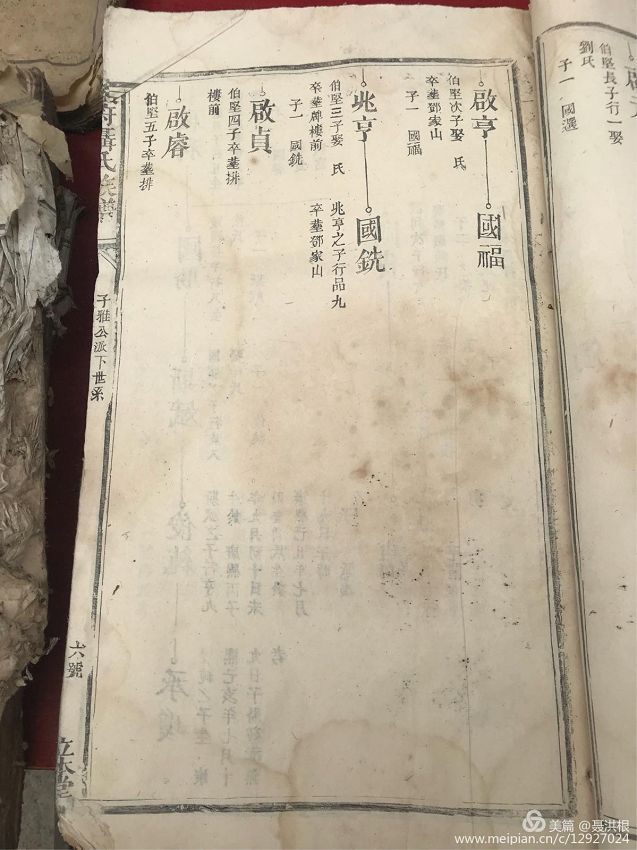 劉氏
伯堅長子行一娶
子一　國選
啟亨
國福
伯堅次子娶　氏
卒葬鄧家山
子一　國福
兆亨
國銑
伯堅三子娶　氏
卒葬牌樓前
子一　國銑
兆亨之子行品九
卒葬鄧家山
啟貞
伯堅四子卒葬排
樓前
啟睿
伯堅五子卒葬排
氏族譜
子雅公派下世系
六號
立本堂
美篇 @聂洪根
www.meipian.cn/c/12927024